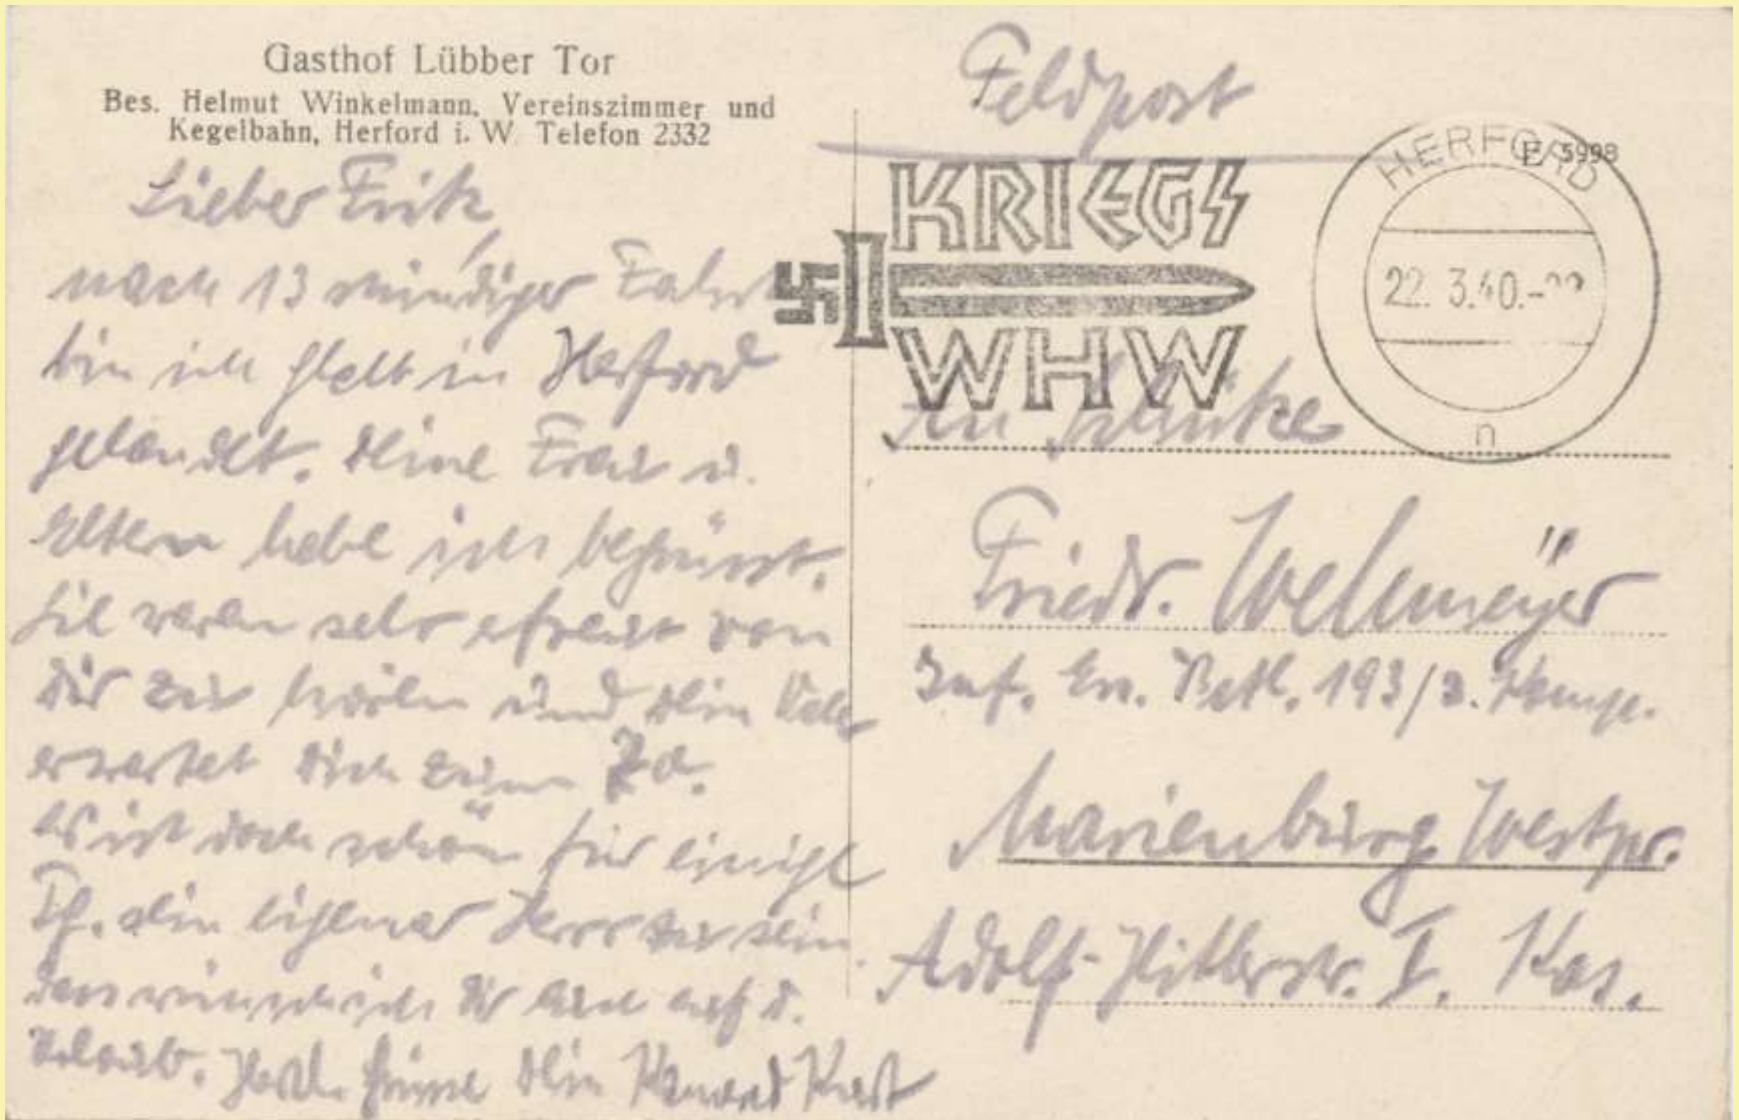 Gasthof Lübber Tor
Bes. Helmut Winkelmann, Vereinszimmer und
Kegelbahn, Herford i. W. Telefon 2332
Lieber Fritz
nach 13 stündiger Fahrt
bin ich in Herford
gelandet. Deine Frau u.
Eltern habe ich begrüsst.
Sie waren sehr erfreut von
Dir zu hören und Dein
erwartet Dich zum
Es ist doch schön für einige
Tg. sein eigener Herr zu sein.
Das wünsche ich Dir auch auf d.
Urlaub. Dein Kamerad
Feldpost
KRIEGS
WHW
HERFORD
E 5998
22. 3.40.-
n
An
Friedr. Wellmeÿer
Inf. Ers. Batl. 193/3. Komp.
Marienburg Westpr.
Adolf-Hitlerstr. I. Kas.